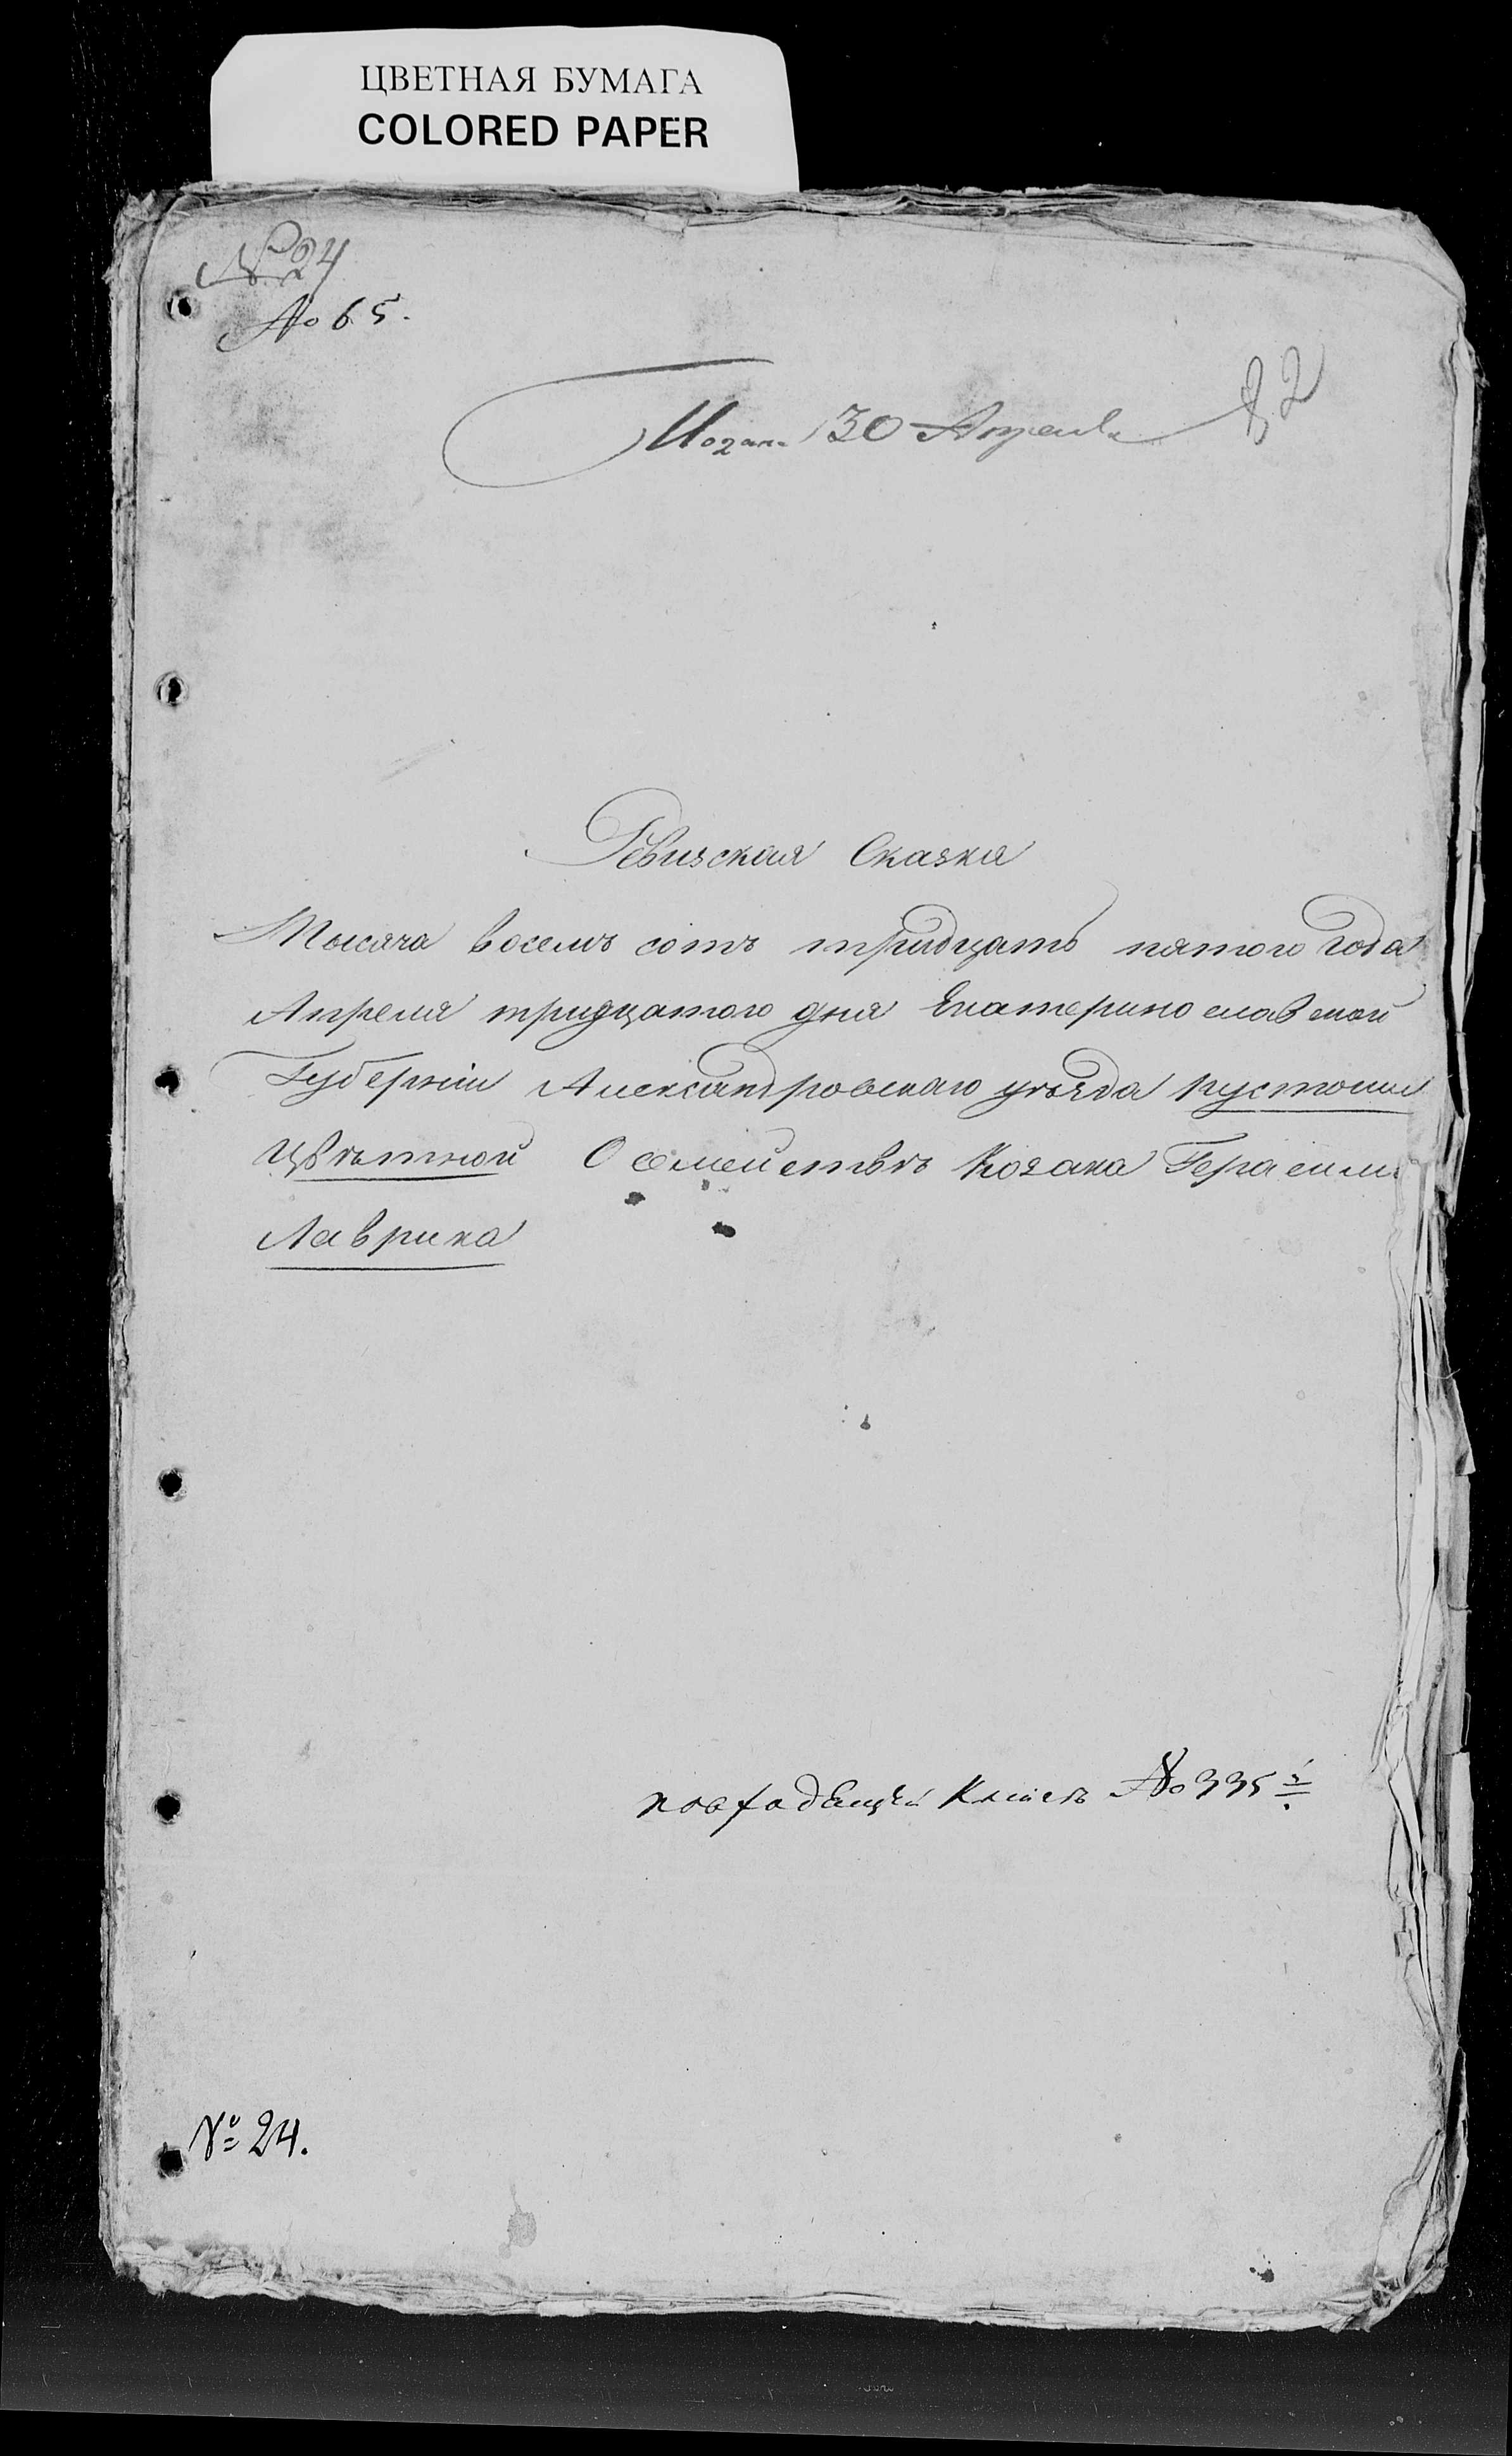 ЦВЕТНАЯ БУМАГА
COLORED PAPER
№ 24
№ 65.
30 Апреля
Ревизская Сказка
Тысяча восемъ сотъ тридцать пятого года
Апреля тридцатого дня Екатеринославской
Губерніи Александровскаго уѣзда пустоши
Цвѣтной О семействѣ Козака Герасима
Лаврика
по входящей Книгѣ № 335
№ 24.